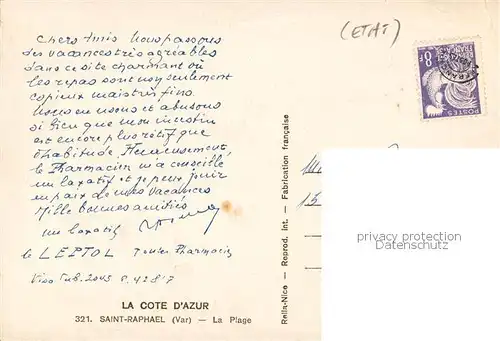 Chers Amis Nous passons
des vacances très agréables
dans ce site charmant où
les repas sont non seulement
copieux mais très fins.
Nous en usons et abusons
si bien que mon intestin
est encore plus rétif que
d'habitude. Heureusement,
le Pharmacien m'a conseillé
un laxatif et je peux jouir
en paix de mes vacances
Mille bonnes amitiés
un laxatif
le LEPTOL Toutes Pharmacies
Visa Pub. 2045 P. 4287
LA COTE D'AZUR
321. SAINT-RAPHAEL (Var) — La Plage
Rella-Nice — Reprod. Int. — Fabrication française
(ETAT)
8F
POSTES
FRANÇAISE
privacy protection
Datenschutz